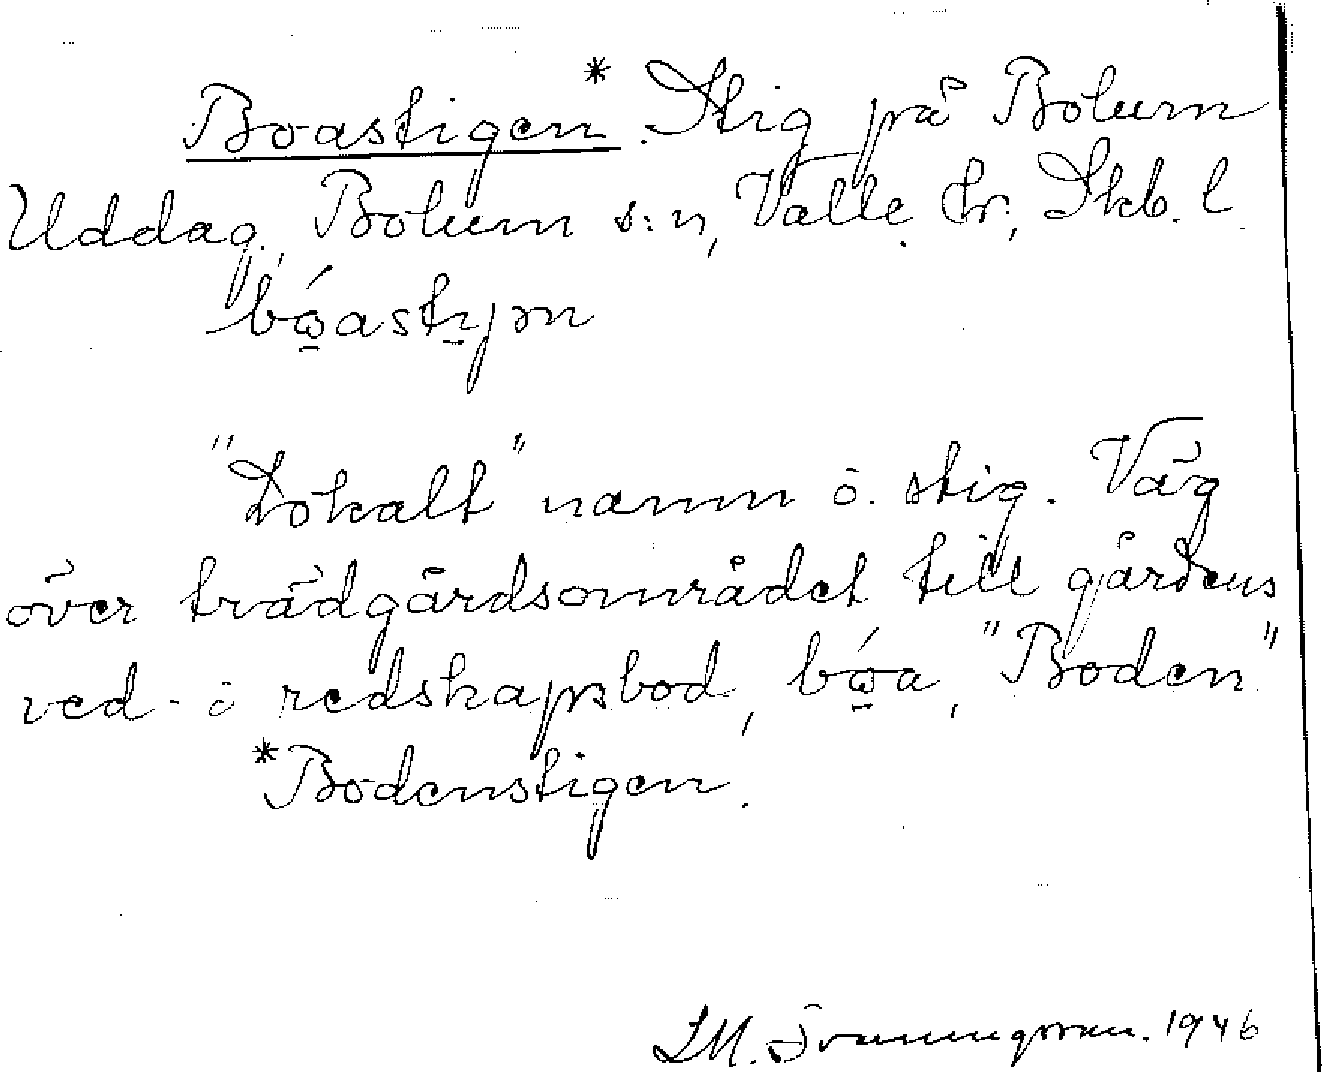 Boastigen* Stig på Bolum
Uddag, Bolum s:n, Valle hr, Skb. l
bóastı̣jən
"Lokalt" namn o. stig. Väg
över trädgårdsområdet till gårdens
ved- o redskapsbod, bóa, "Boden"
*Bodenstigen.
LM. Svenungsson. 1946